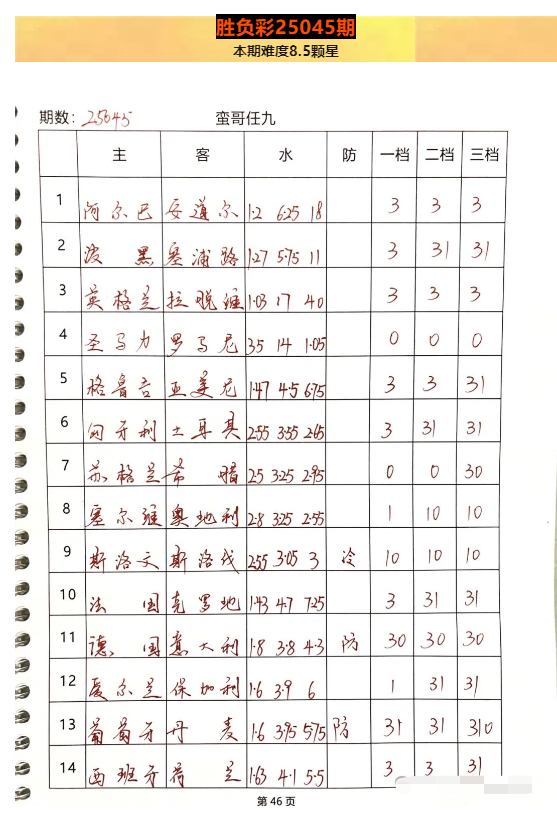 胜负彩25045期
本期难度8.5颗星
期数: 25045 蛮哥任九
主 客 水 防 一档 二档 三档
1 阿尔巴 安道尔 1.2 6.25 18 3 3 3
2 波黑 塞浦路 1.27 5.75 11 3 31 31
3 英格兰 拉脱维 1.03 17 40 3 3 3
4 圣马力 罗马尼 35 14 1.05 0 0 0
5 格鲁吉 亚美尼 1.47 4.5 6.75 3 3 31
6 匈牙利 土耳其 2.55 3.55 2.65 3 31 31
7 苏格兰 希腊 2.5 3.25 2.95 0 0 30
8 塞尔维 奥地利 2.8 3.25 2.55 1 10 10
9 斯洛文 斯洛伐 2.55 3.05 3 冷 10 10 10
10 法国 克罗地 1.43 4.7 7.25 3 31 31
11 德国 意大利 1.8 3.8 4.3 防 30 30 30
12 爱尔兰 保加利 1.6 3.9 6 1 31 31
13 葡萄牙 丹麦 1.6 3.95 5.75 防 31 31 310
14 西班牙 荷兰 1.63 4.1 5.5 3 3 31
第 46 页